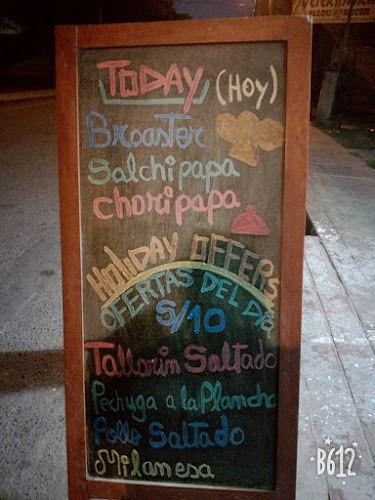 TODAY (HOY)
Broaster
Salchipapa
choripapa
HOLIDAY OFFERS
OFERTAS DEL DÍA
S/10
Tallarin Saltado
Pechuga a la Plancha
Pollo Saltado
Milanesa
B612